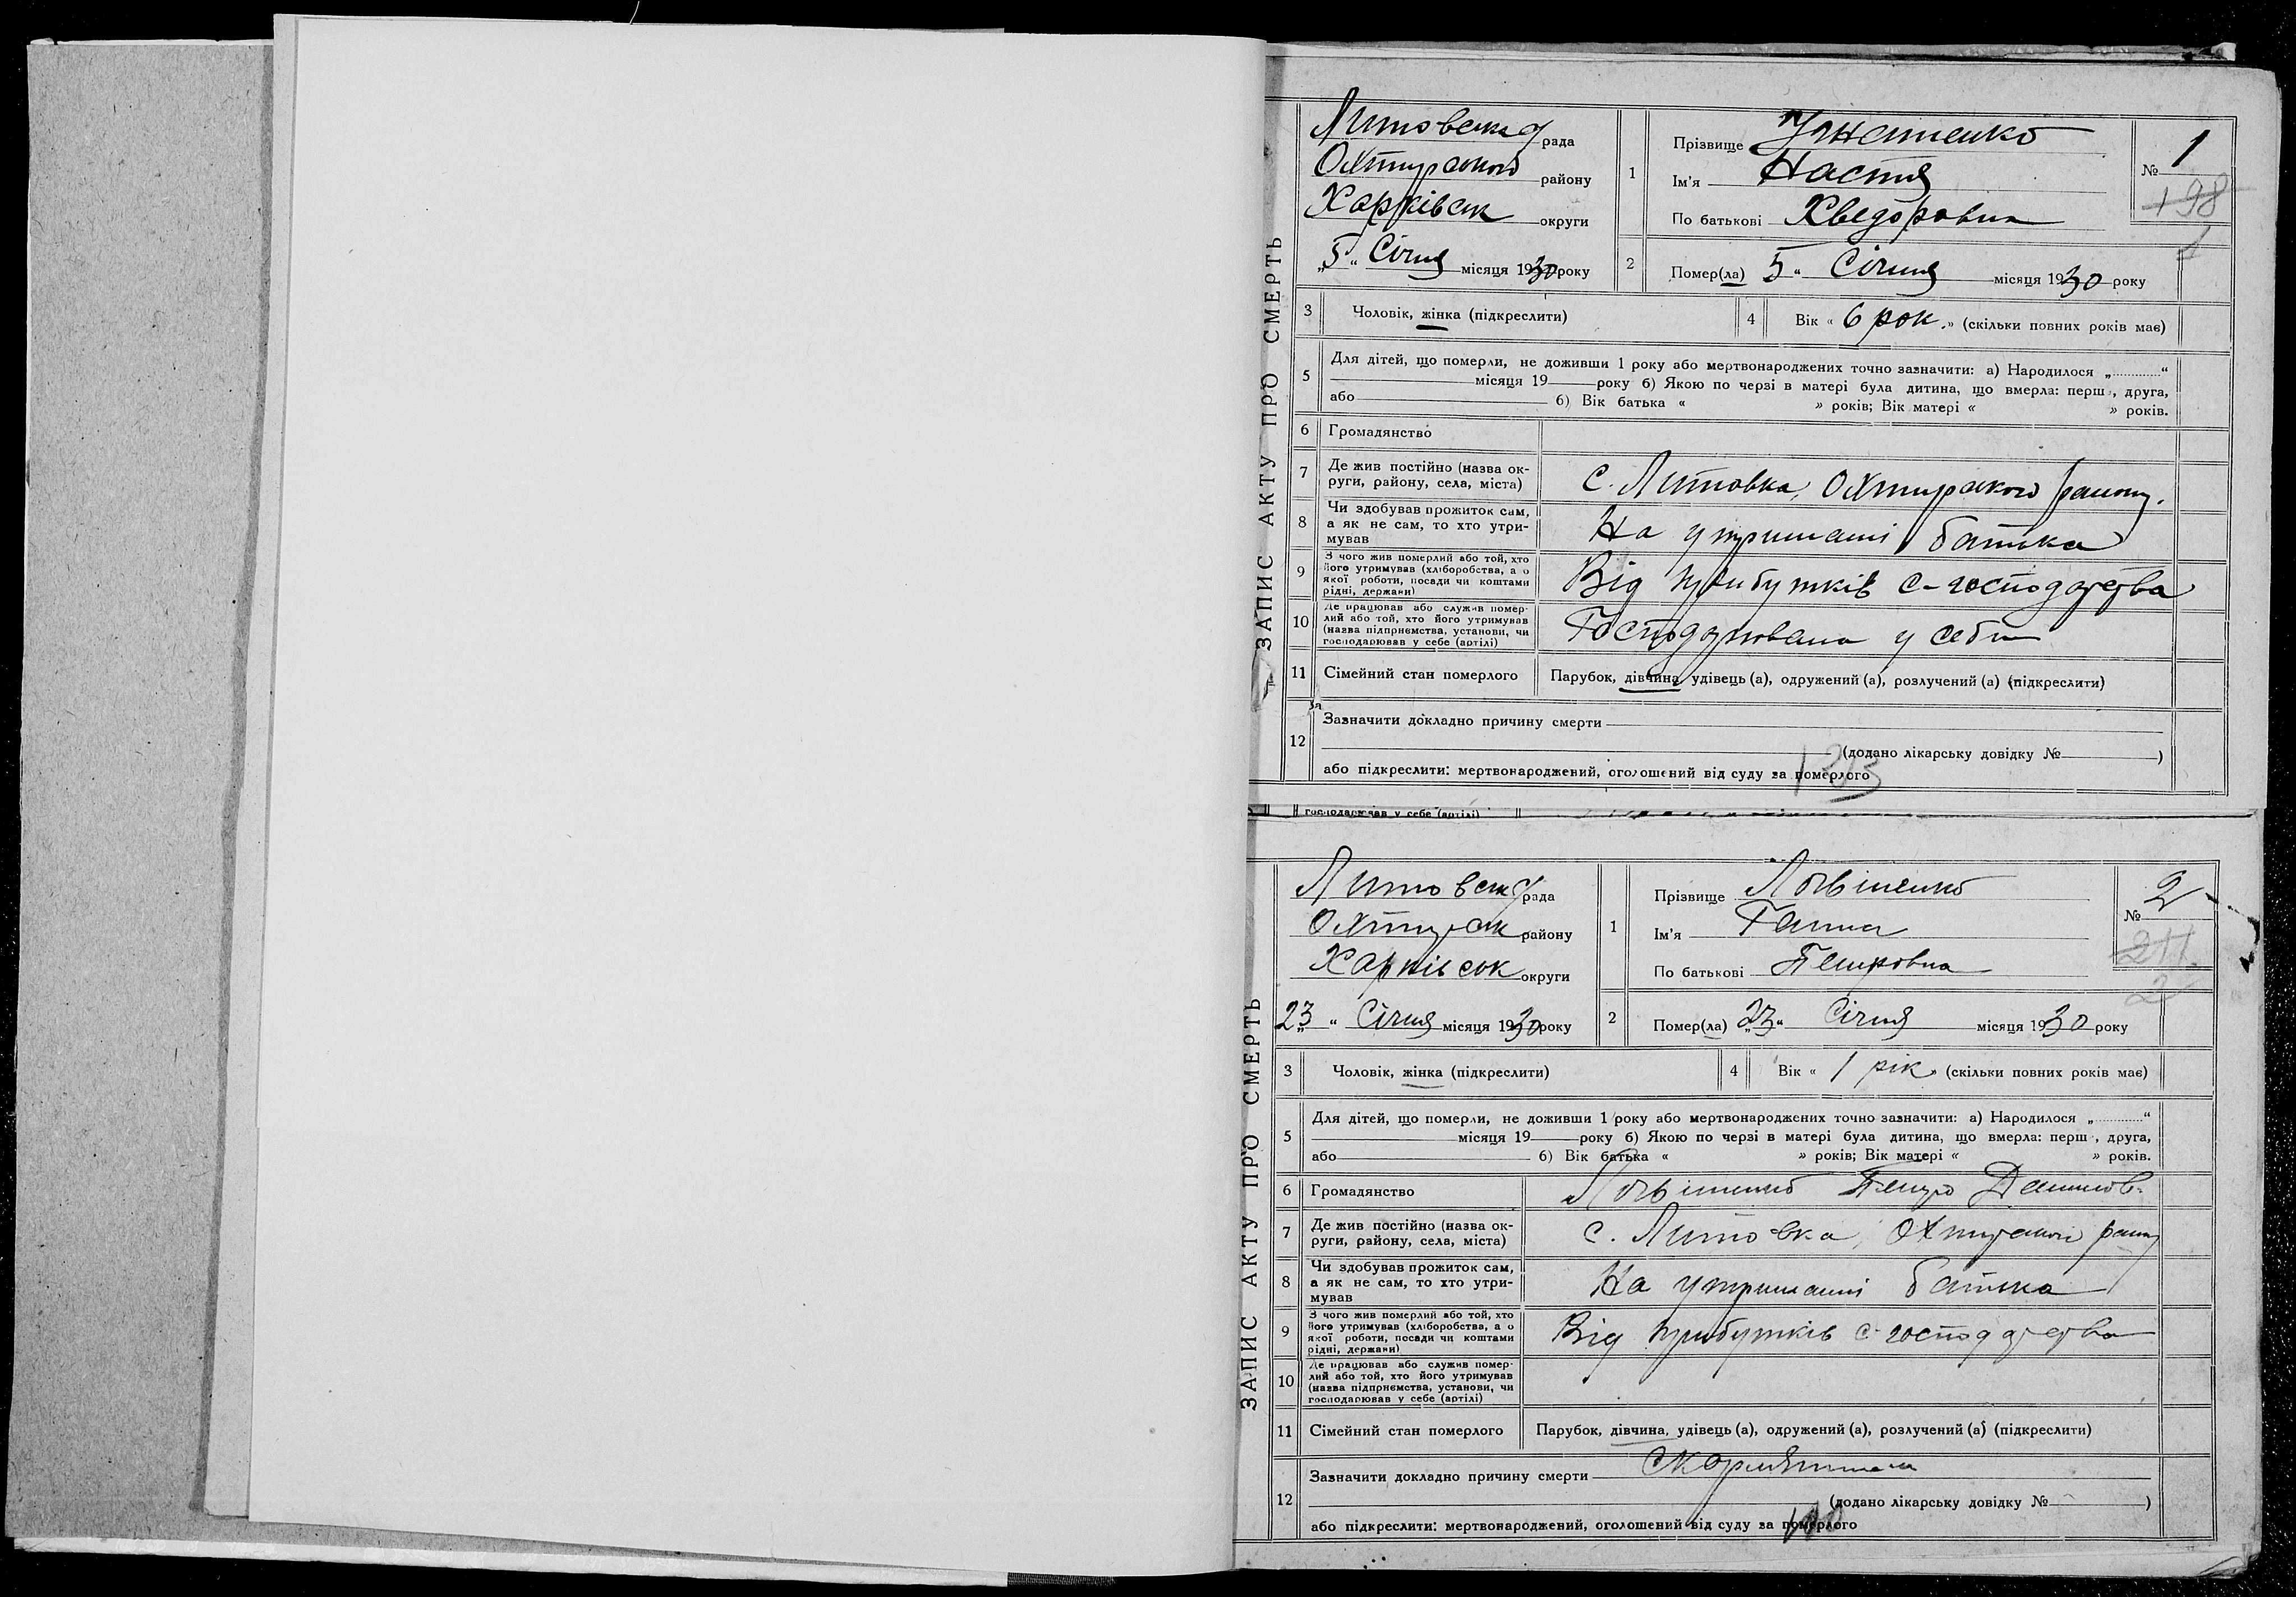 ЗАПИС АКТУ ПРО СМЕРТЬ
Литовська рада
Охтирського району
Харківськ округи
„5“ Січня місяця 1930 року
1 Прізвище
Ім'я Настя
По батькові Хведоровна
№ 1
198
1
2 Помер(ла) 5 “ Січня місяця 1930 року
3 Чоловік, жінка (підкреслити)
4 Вік « 6 рок.» (скільки повних років має)
5 Для дітей, що померли, не доживши 1 року або мертвонароджених точно зазначити: а) Народилося „ “
місяця 19 року б) Якою по черзі в матері була дитина, що вмерла: перша, друга,
або б) Вік батька « » років; Вік матері « » років.
6 Громадянство
7 Де жив постійно (назва ок-
руги, району, села, міста)
с. Литовка, Охтирського району.
8 Чи здобував прожиток сам,
а як не сам, то хто утри-
мував
На утриманні батька
9 З чого жив померлий або той, хто
його утримував (хліборобства, а о
якої роботи, посади чи коштами
рідні, держави)
Від прибутків с-господарства
10 Де працював або служив помер-
лий або той, хто його утримував
(назва підприємства, установи, чи
господарював у себе (артілі)
у себе
11 Сімейний стан померлого
Парубок, дівчина, удівець (а), одружений (а), розлучений (а) (підкреслити)
12 Зазначити докладно причину смерти
(додано лікарську довідку № )
або підкреслити: мертвонароджений, оголошений від суду за померлого
господарював у себе (артілі)
ЗАПИС АКТУ ПРО СМЕРТЬ
Литовськ рада
Охтирськ району
Харківськ округи
23 “ Січня місяця 1930 року
1 Прізвище Логвіненко
Ім'я Ганна
По батькові Петровна
№ 2
211
2
2 Помер(ла) „23“ Січня місяця 1930 року
3 Чоловік, жінка (підкреслити)
4 Вік « 1 рік» (скільки повних років має)
5 Для дітей, що померли, не доживши 1 року або мертвонароджених точно зазначити: а) Народилося „ “
місяця 19 року б) Якою по черзі в матері була дитина, що вмерла: перш , друга,
або б) Вік батька « » років; Вік матері « » років.
6 Громадянство
Логвіненко Петро Данилов.
7 Де жив постійно (назва ок-
руги, району, села, міста)
с. Литовка, Охтирського району
8 Чи здобував прожиток сам,
а як не сам, то хто утри-
мував
На утриманні батька
9 З чого жив померлий або той, хто
його утримував (хліборобства, а о
якої роботи, посади чи коштами
рідні, держави)
Від прибутків с-господарства
10 Де працював або служив помер-
лий або той, хто його утримував
(назва підприємства, установи, чи
господарював у себе (артілі)
11 Сімейний стан померлого
Парубок, дівчина, удівець (а), одружений (а), розлучений (а) (підкреслити)
12 Зазначити докладно причину смерти
(додано лікарську довідку № )
або підкреслити: мертвонароджений, оголошений від суду за померлого